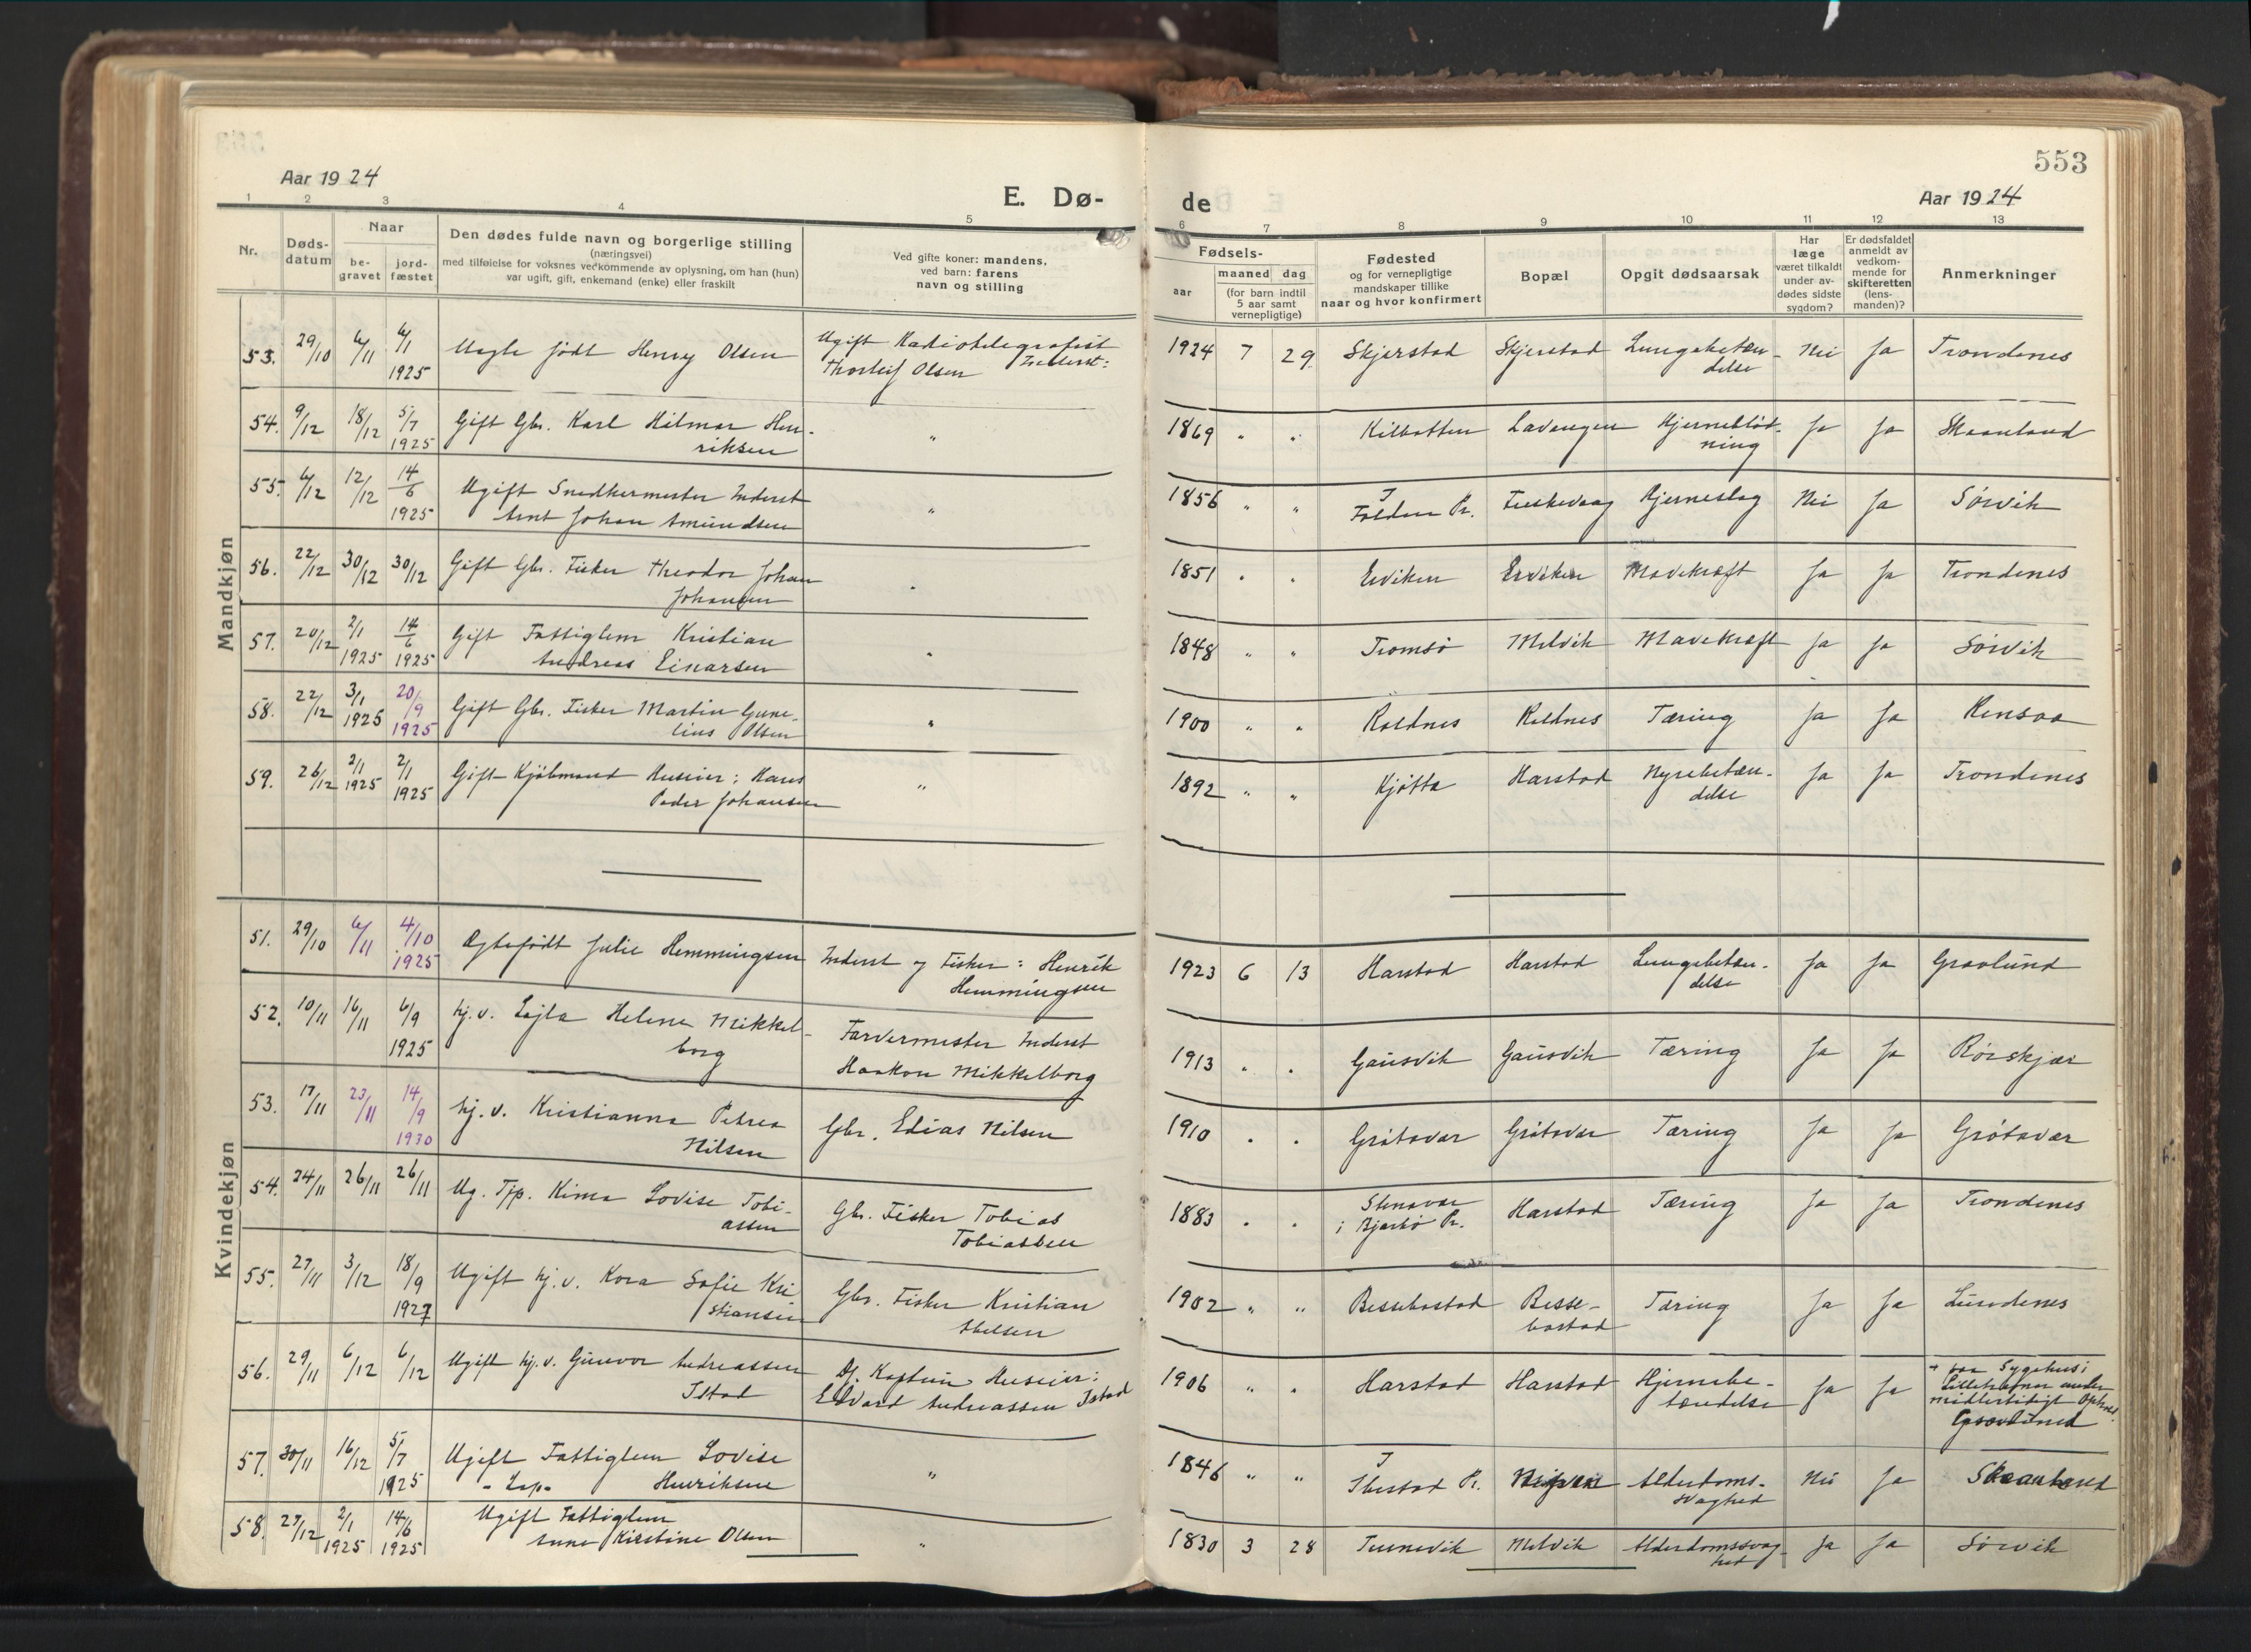 553
Aar 1924
E. Dø-
de
Aar 1924
1 2 3 4 5 6 7 8 9 10 11 12 13
Nr.
Døds-
datum
Naar
be-
gravet
jord-
fæstet
Den dødes fulde navn og borgerlige stilling
(næringsvei)
med tilføielse for voksnes vedkommende av oplysning, om han (hun)
var ugift, gift, enkemand (enke) eller fraskilt
Ved gifte koner: mandens,
ved barn: farens
navn og stilling
Fødsels-
aar
maaned dag
(for barn indtil
5 aar samt
vernepligtige)
Fødested
og for vernepligtige
mandskaper tillike
naar og hvor konfirmert
Bopæl
Opgit dødsaarsak
Har
læge
været tilkaldt
under av-
dødes sidste
sygdom?
Er dødsfaldet
anmeldt av
vedkom-
mende for
skifteretten
(lens-
manden)?
Anmerkninger
Mandkjøn
53. 29/10 6/11 6/1 1925 Uegte født Henry Olsen Ugift Radiotelegrafist Thorleif Olsen Inderst: 1924 7 29. Skjerstad Skjerstad Lungebetæn-delse Nei Ja Trondenes
54. 9/12 18/12 5/7 1925 Gift Gbr. Karl Hilmar Hen-riksen " 1869 " " Kilbotten Lavangen Hjerneblød-ning Ja Ja Skaanland
55. 6/12 12/12 14/6 1925 Ugift Snedkermester Inderst Arnt Johan Amundsen " 1856 " " I Folden Pr. Fuskevaag Hjerneslag Nei Ja Sørvik
56. 22/12 30/12 30/12 Gift Gbr. Fisker Theodor Johan Johansen " 1851 " " Erviken Erviken Mavekræft Ja Ja Trondenes
57. 20/12 2/1 1925 14/6 1925 Gift Fattiglem Kristian Andreas Einarsen " 1848 " " Tromsø Melvik Mavekræft Ja Ja Sørvik
58. 22/12 3/1 1925 20/9 1925 Gift Gbr. Fisker Martin Gune-lius Olsen " 1900 " " Roldnes Roldnes Tæring Ja Ja Kensaa
59. 26/12 2/1 1925 2/1 1925 Gift Kjøbmand Huseier: Hans Peder Johansen " 1892 " " Kjøtta Harstad Nyrebetæn-delse Ja Ja Trondenes
Kvindekjøn
51. 29/10 6/11 4/10 1925 Ægtefødt Julie Hemmingsen Inderst og Fisker: Henrik Hemmingsen 1923 6 13 Harstad Harstad Lungebetæn-delse Ja Ja Gravlund
52. 10/11 16/11 6/9 1925 hj.v. Lajla Helene Mikkel-borg Farvermester Inderst Haakon Mikkelborg 1913 " " Gausvik Gausvik Tæring Ja Ja Rørskjær
53. 17/11 23/11 14/9 1930 hj.v. Kristianna Petrea Nilsen Gbr. Edias Nilsen 1910 " " Grøtavær Grøtavær Tæring Ja Ja Grøtavær
54. 24/11 26/11 26/11 Ug. Tjp. Kima Lovise Tobi-assen Gbr. Fisker Tobias Tobiassen 1883 " " i Bjarkø Pr. Harstad Tæring Ja Ja Trondenes
55. 27/11 3/12 18/9 1927 Ugift hj.v. Kora Sofie Kri stiansen Gbr. Fisker Kristian 1902 " " Bessebostad Besse-bostad Tæring Ja Ja Lundenes
56. 29/11 6/12 6/12 Ugift hj.v. Gunvor Andreassen Istad Df. Kaptein Huseier: Edvard Andreassen Istad 1906 " " Harstad Harstad Hjernebe-tændelse Ja Ja + paa Sygehus i under midlertidigt Ophold. Gravlund
57. 30/11 16/12 5/7 1925 Ugift Fattiglem Lovise - Lap - Henriksen " 1846 " " I Ibestad Pr. Alderdoms-svaghed Nei Ja Skaanland
58. 27/12 2/1 1925 14/6 1925 Ugift Fattiglem Anne Kirstine Olsen " 1830 3 28 Tennevik Melvik Alderdomssvag-hed Ja Ja Sørvik